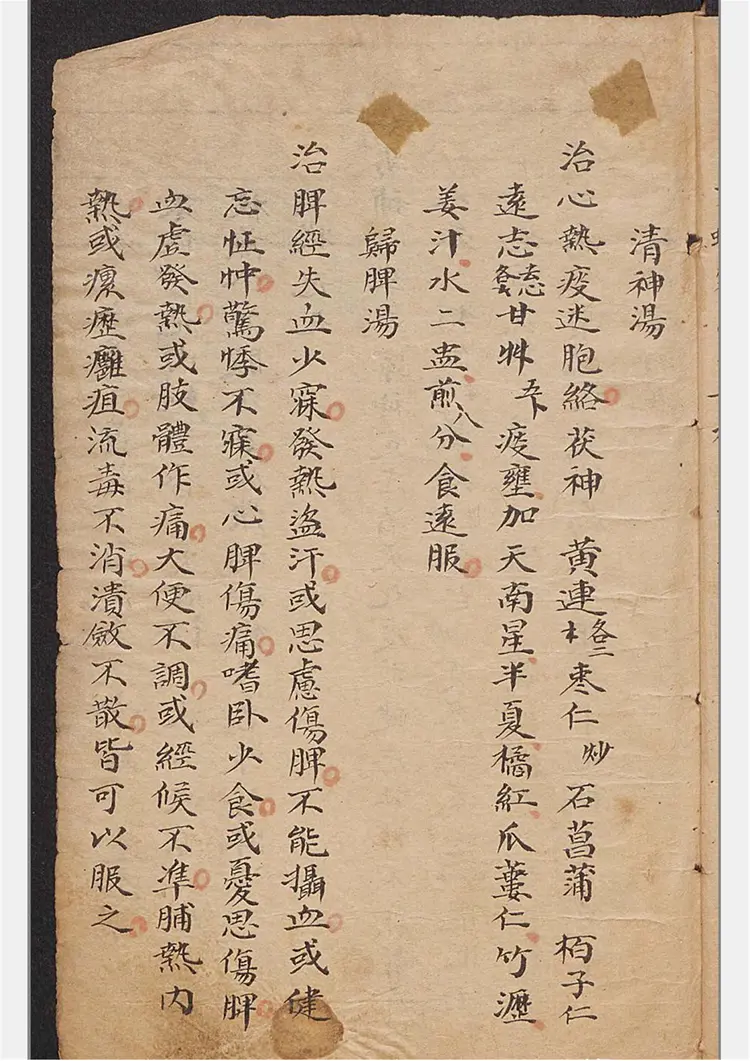 清神湯
治心熱痰迷胞絡茯神 黄連各二𠂇棗仁炒 石菖蒲 栢子仁
遠志 甘艸五下痰壅加天南星半夏橘紅瓜蔞仁竹瀝
姜汁水二盅煎八分食遠服
歸脾湯
治脾經失血少寐發熱盗汗或思慮傷脾不能攝血或健
忘怔忡驚悸不寐或心脾傷痛嗜卧少食或憂思傷脾
血虛發熱或肢體作痛大便不調或經候不準脯熱内
熱或瘰癧癰疽流毒不消潰斂不散皆可以服之